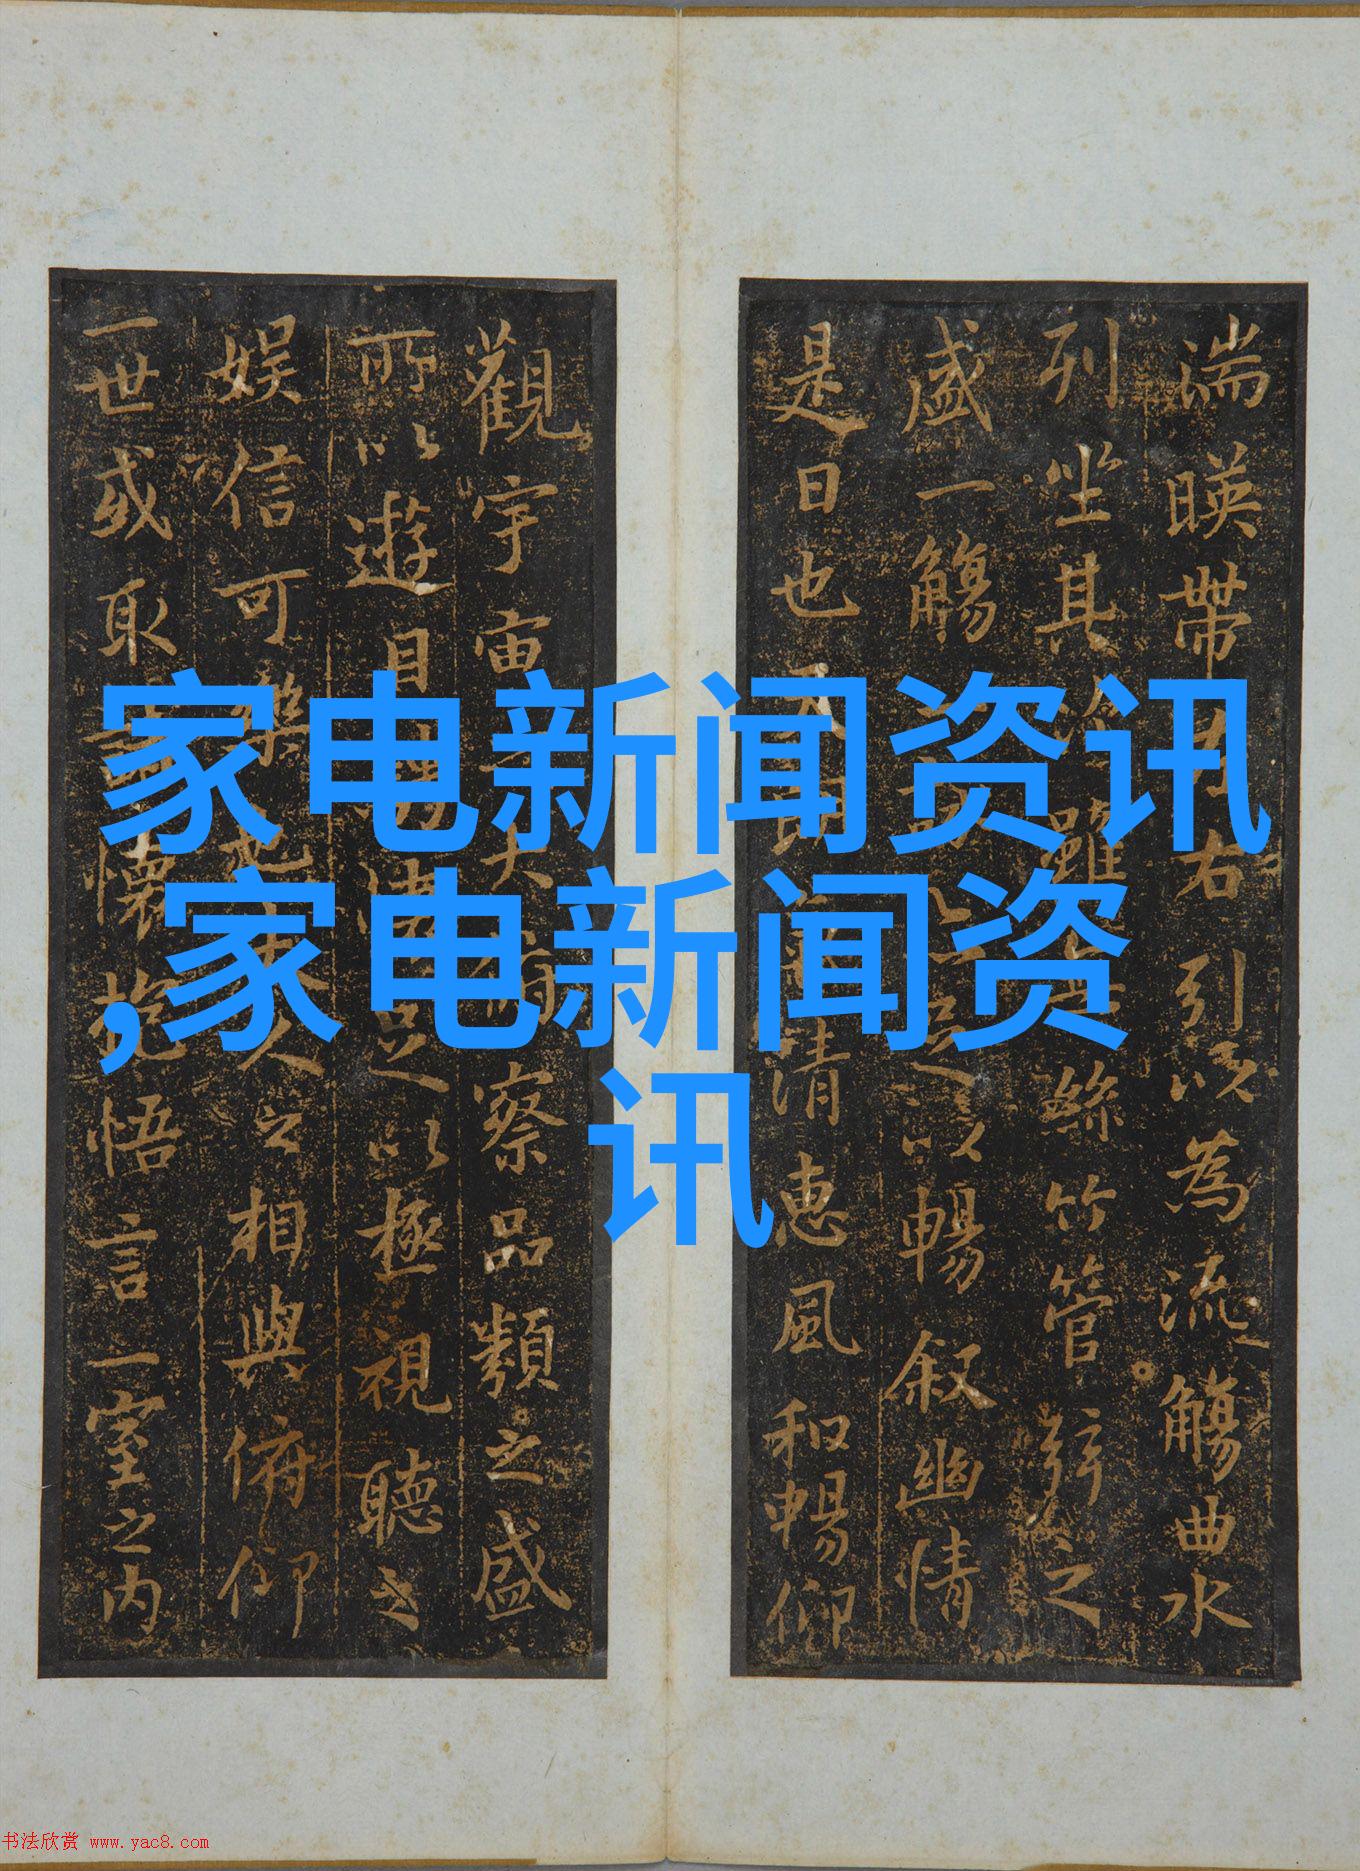 湍暎帶右引以為流觴曲水
列坐其雖絲竹管弦之
盛一觴足以暢叙幽情
是日也天清惠風和暢仰
觀宇宙大察品類之盛
所以遊目足以極視聽之
娱信可樂也人之相與俯仰
一世或取懷抱悟言一室之内
家电新闻资讯
,家电新闻资
讯
书法欣赏 www.yac8.com